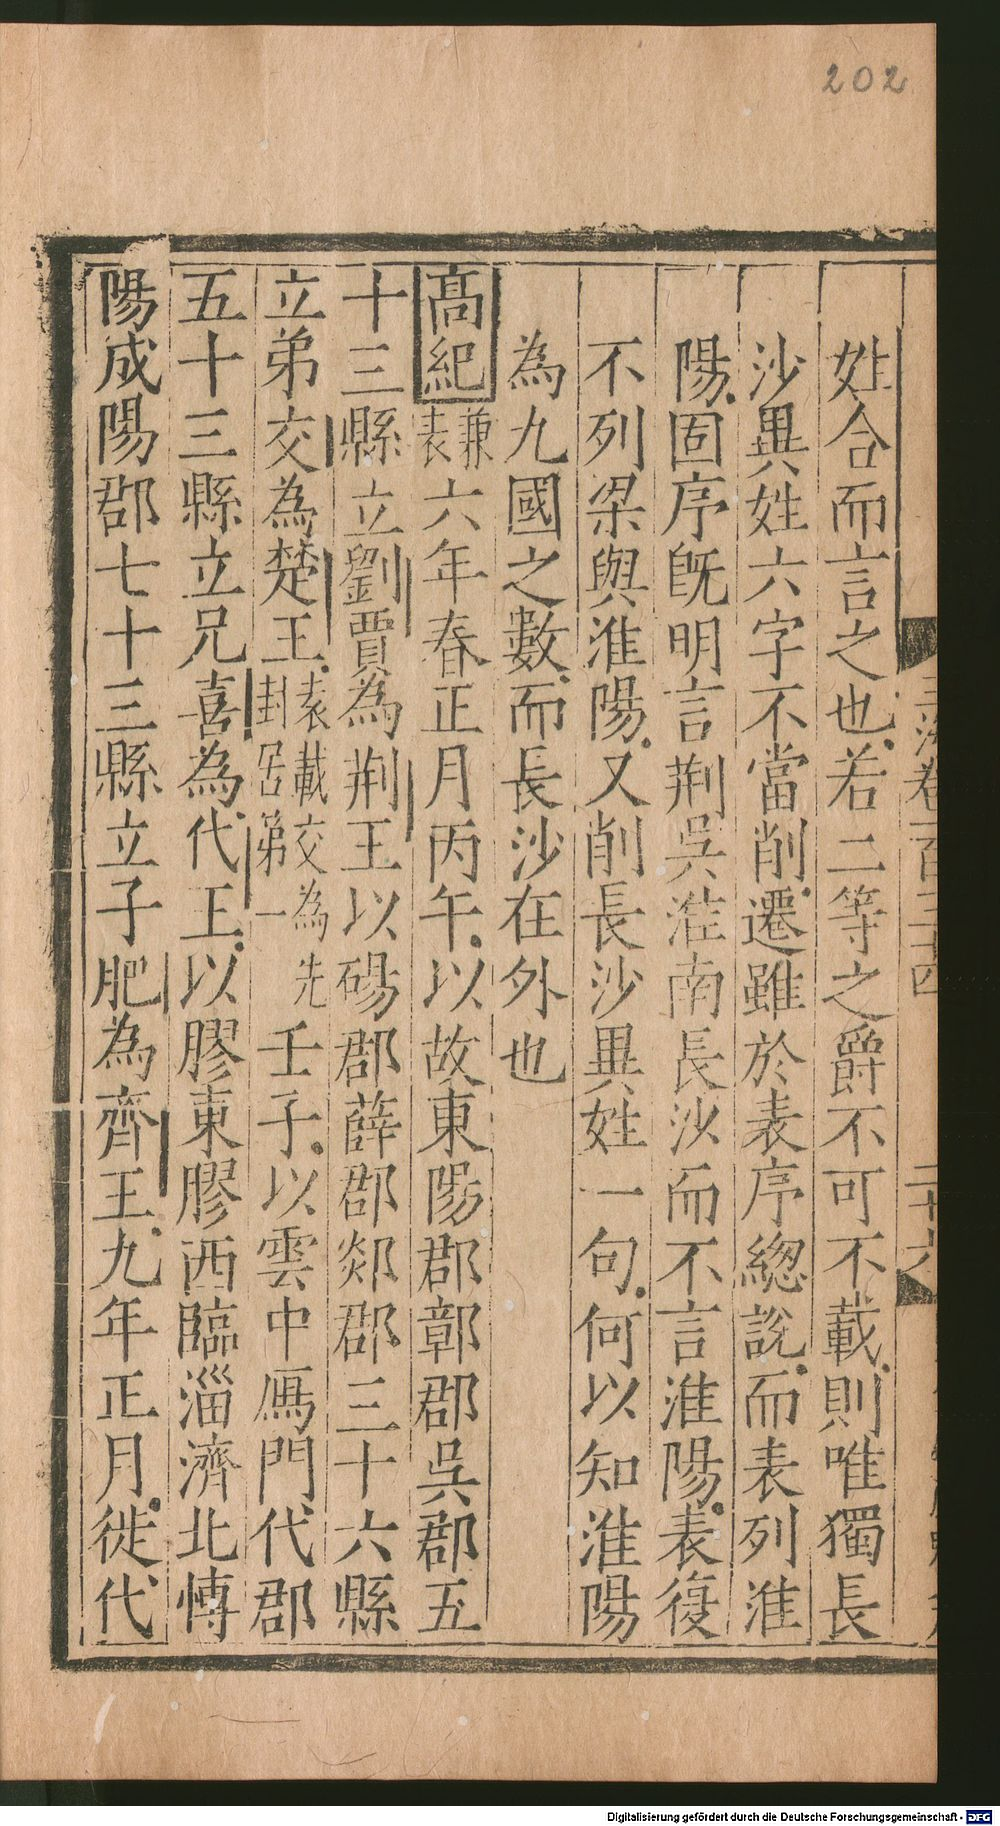 202
姓合而言之也若二等之爵不可不載則唯獨長
沙異姓六字不當削遷雖於表序緫說而表列淮
陽固序旣明言荆吳淮南長沙而不言淮陽表復
不列梁與淮陽又削長沙異姓一句何以知淮陽
為九國之數而長沙在外也
高紀兼表六年春正月丙午以故東陽郡鄣郡吳郡五
十三縣立劉賈為荆王以碭郡薛郡郯郡三十六縣
立弟交為楚王表載交為先封呂第一壬子以雲中鴈門代郡
五十三縣立兄喜為代王以膠東膠西臨淄濟北慱
陽成陽郡七十三縣立子肥為齊王九年正月徙代
玉海卷一百三十四
二十六
Digitalisierung gefördert durch die Deutsche Forschungsgemeinschaft - DFG